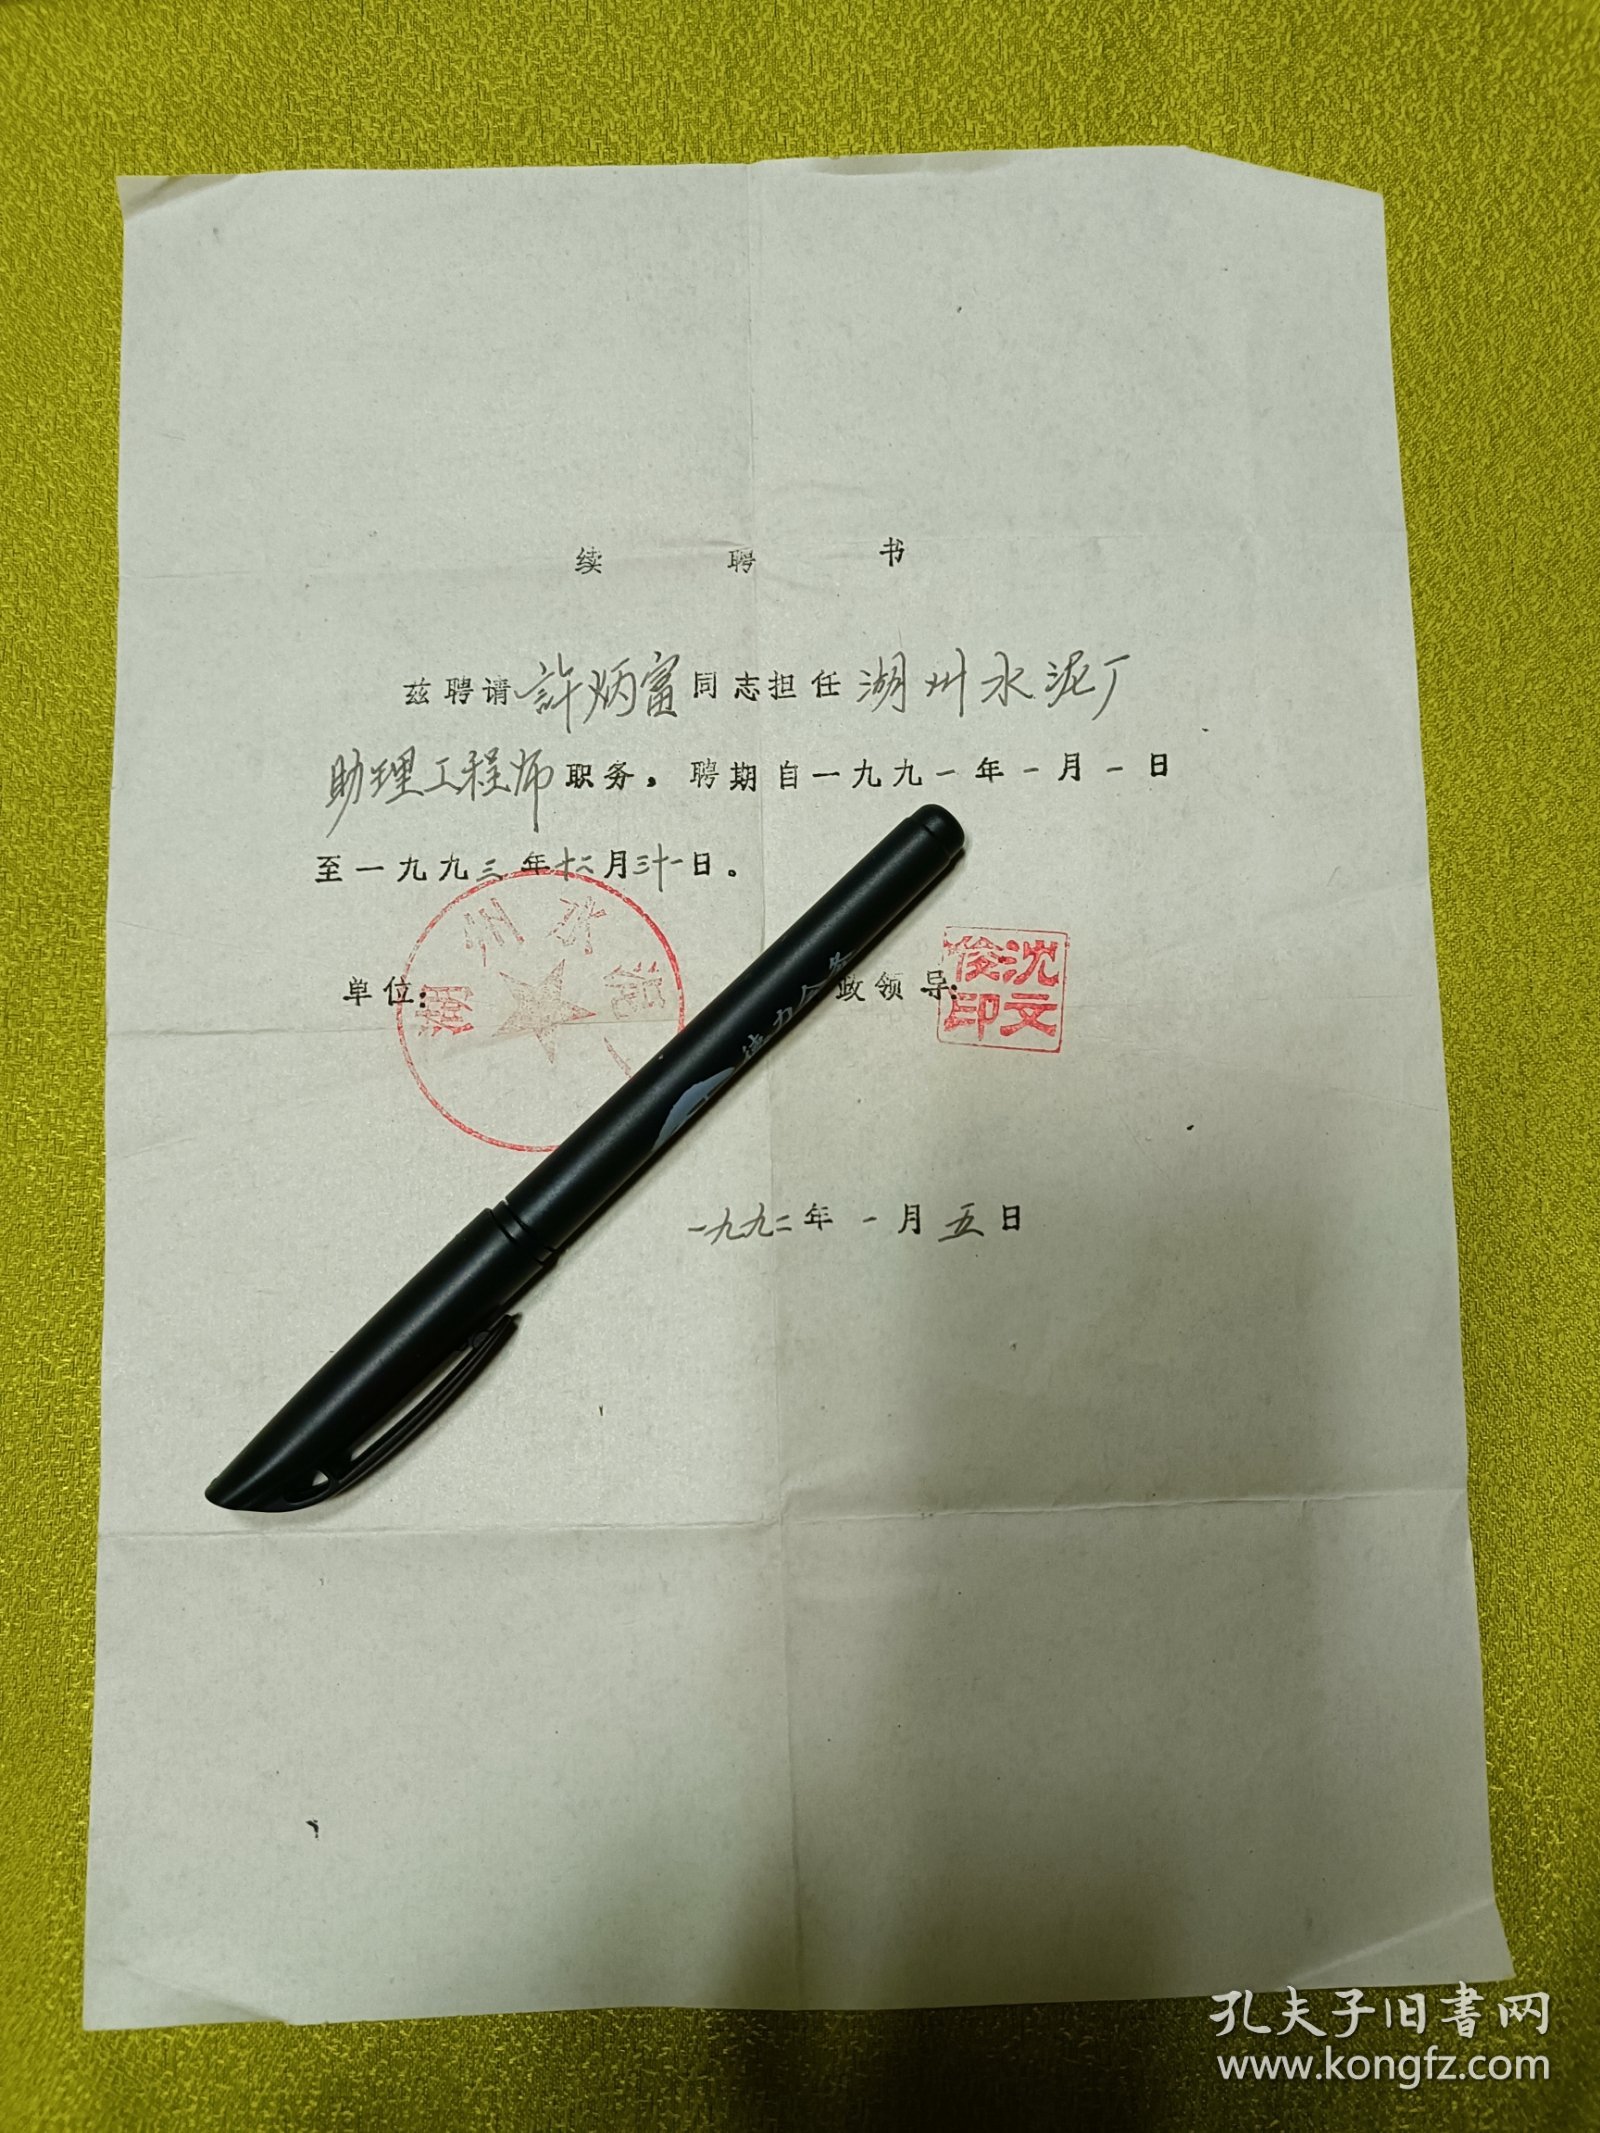 续聘书
兹聘请許炳富同志担任湖州水泥厂
助理工程师职务，聘期自一九九一年一月一日
至一九九三年十二月三十一日。
单位：
政领导：
湖州水泥厂
沈文俊印
一九九二年一月五日
孔夫子旧書网
www.kongfz.com